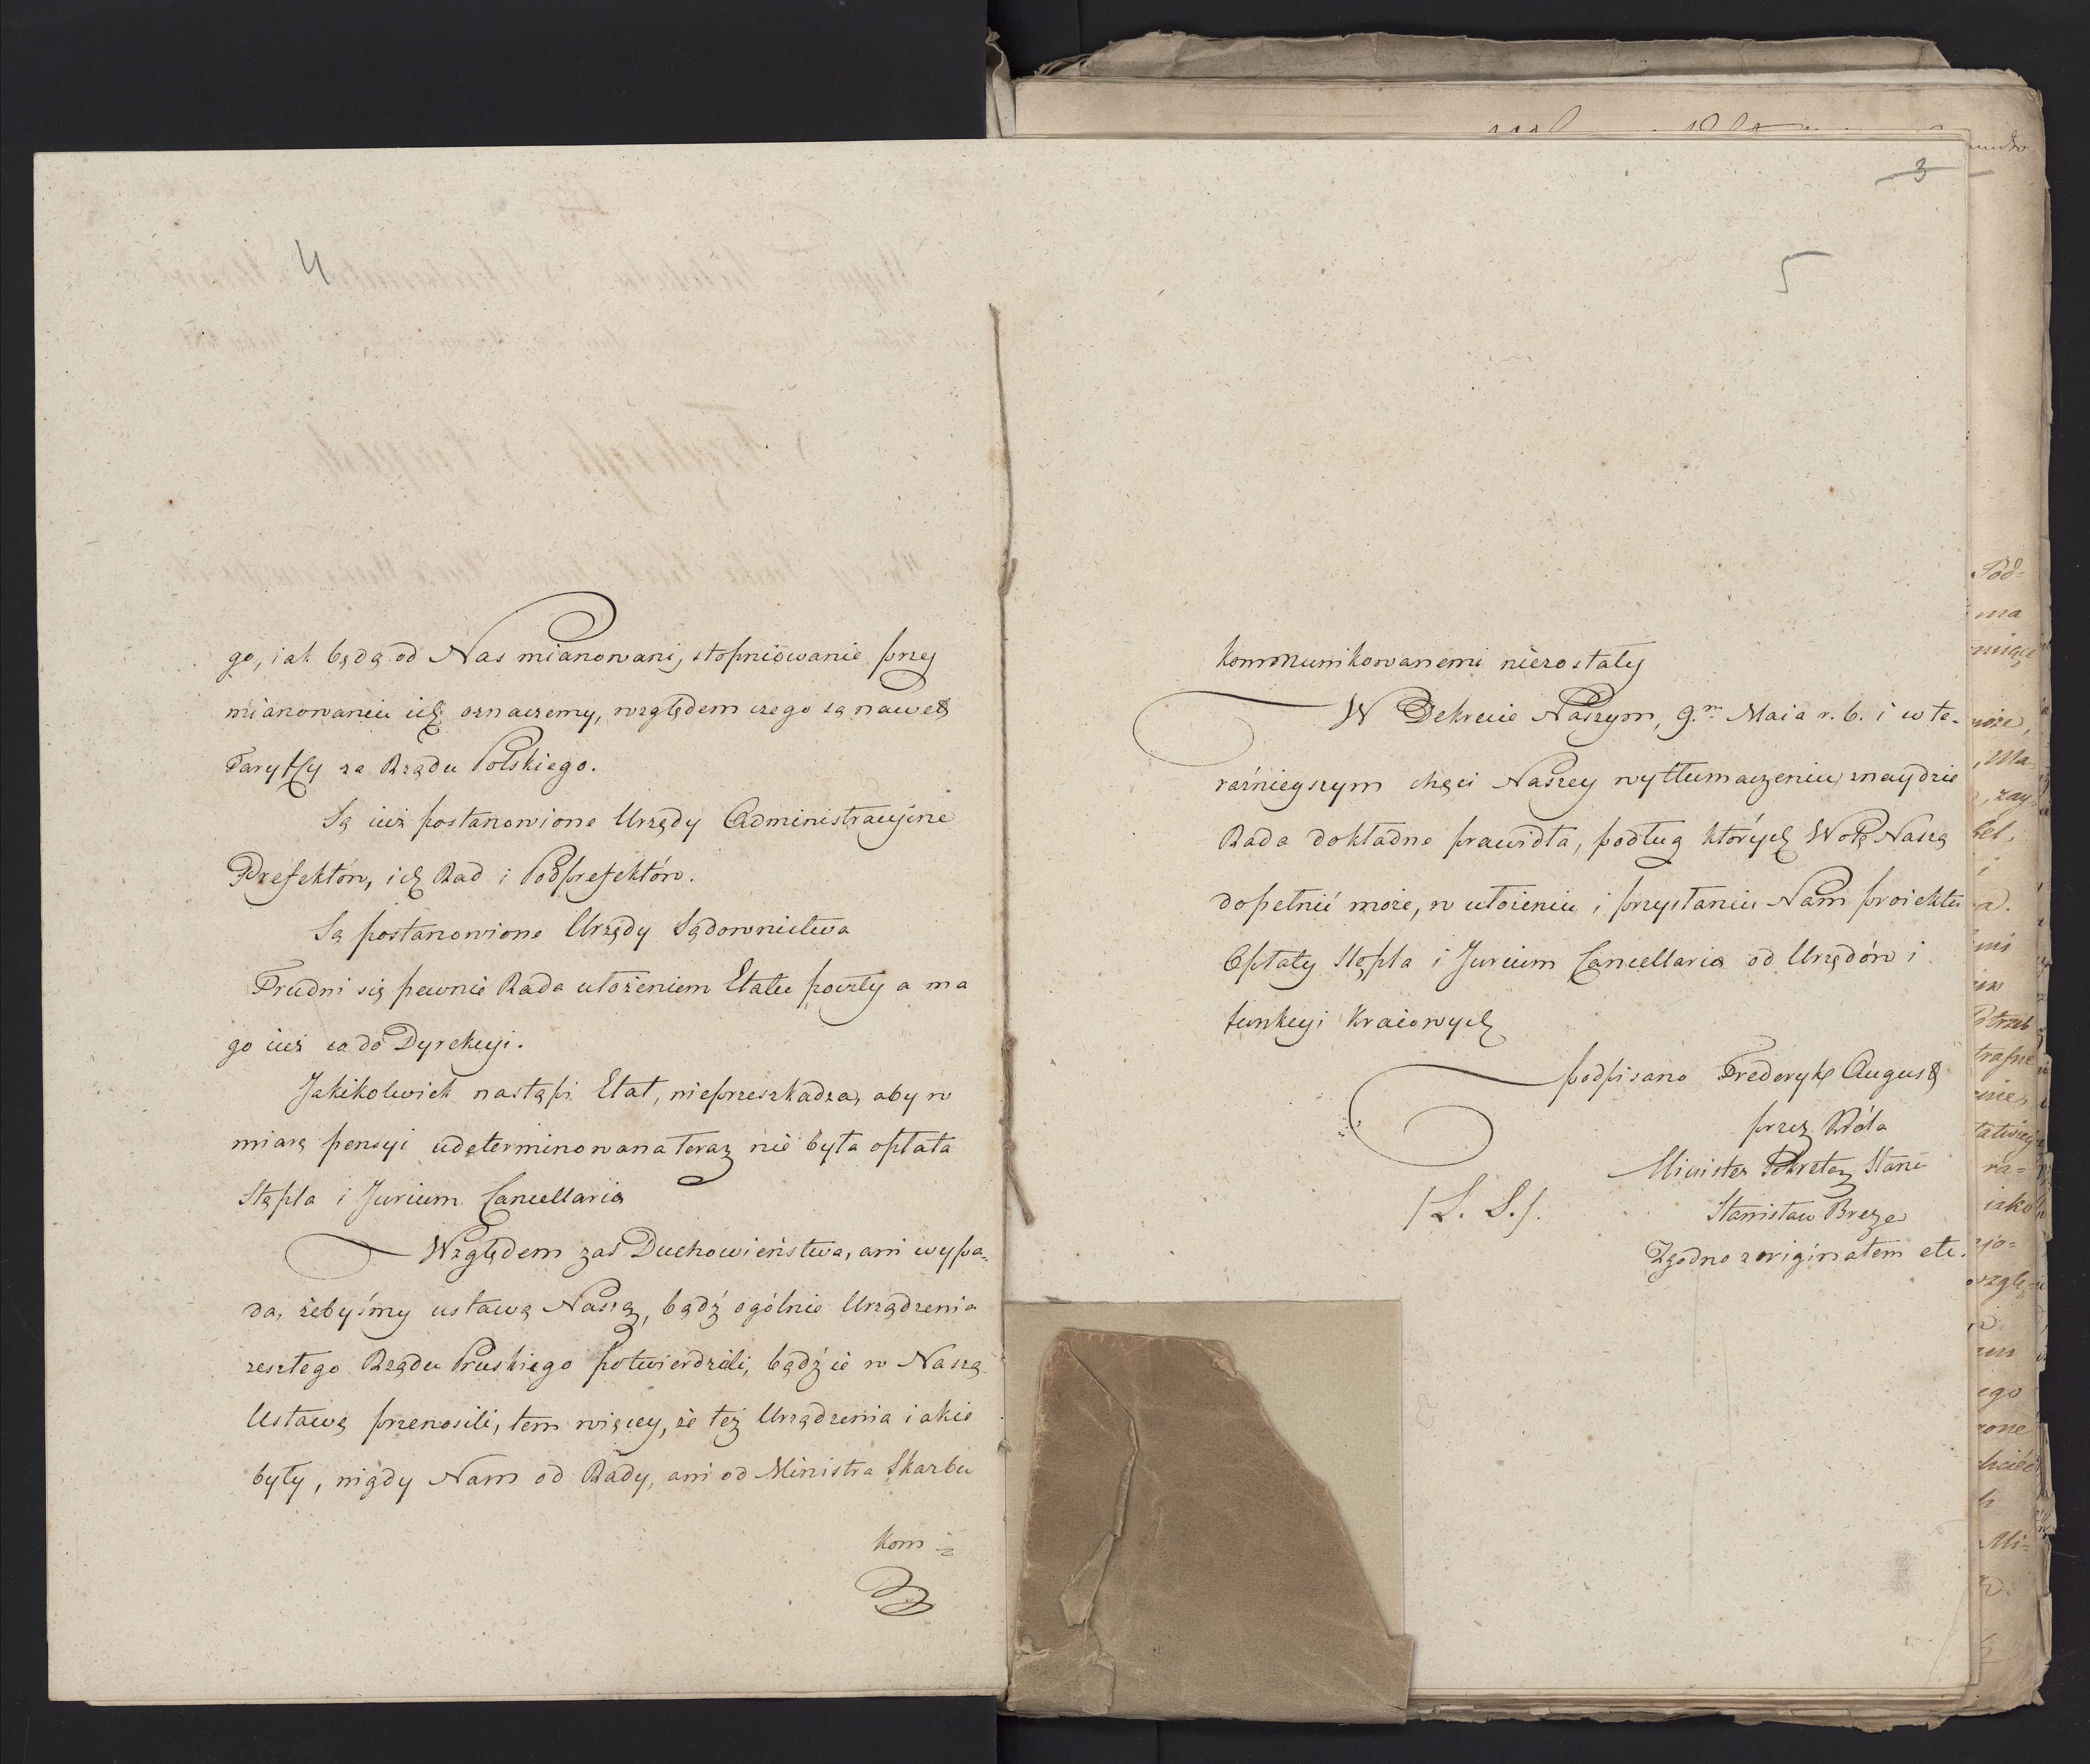 4
go, iak będą od Nas mianowani, stopniowanie przy
mianowaniu ich oznaczemy, względem czego są nawet
Taryffy za Rządu Polskiego.
Są iuż postanowione Urzędy Administracyjne
Prefektów, ich Rad i Podprefektów.
Są postanowione Urzędy Sądownictwa
Trudni się pewnie Rada ułożeniem Etatu poczty a ma
go iuż co do Dyrekcyi.
Jakikolwiek nastąpi Etat, nieprzeszkadza, aby w
miarę pensyi udeterminowana teraz nie była opłata
Stępla i Jurium Cancellaria
Względem zaś Duchowieństwa, ani wypa-
da, żebyśmy ustawą Naszą, bądź ogólnie Urządzenia
zeszłego Rządu Pruskiego potwierdzili, bądź ie w Naszą
Ustawę przenosili, tem więcey, że też Urządzenia iakie
były, nigdy Nam od Rady, ani od Ministra Skarbu
kom=
3
5
kommunikowanemi niezostały
W Dekrecie Naszym, 9.m Maia r. b. i w te-
raźnieyszym chęci Naszey wytłumaczeniu, znaydzie
Rada dokładne prawidła, podług których Wolę Naszą
dopełnić może, w ułożeniu i przysłaniu Nam proiektu
Opłaty Stępla i Jurium Cancellaria od Urzędów i
funkcyi Kraiowych
podpisano Frederyk August
przez Króla
Minister Sekretarz Stanu
/L. S./.
Stanisław Breza
Zgodno z originałem etc.